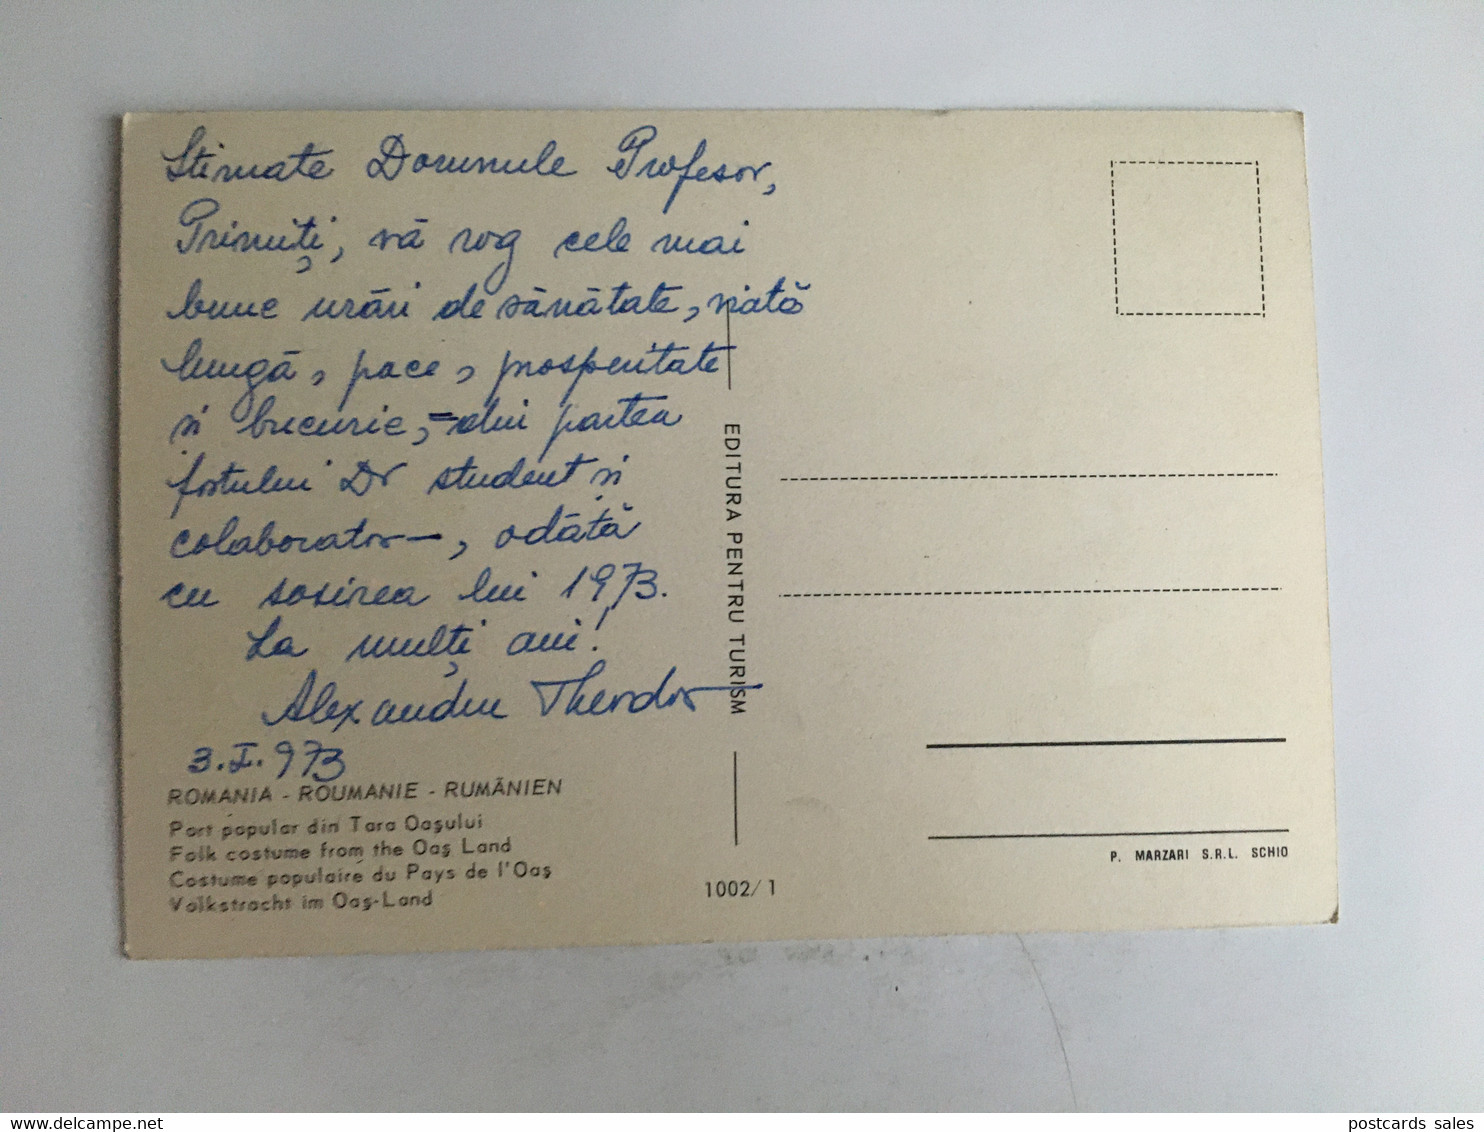 Stimate Domnule Profesor,
Primiți, vă rog cele mai
bune urări de sănătate, viată
lungă, pace, prosperitate
si bucurie, - din partea
fostului Dv student si
colaborator -, odătă
cu sosirea lui 1973.
La mulți ani!
Alexandru Theodor
3.I.973
ROMANIA - ROUMANIE - RUMÄNIEN
Port popular din Tara Oașului
Folk costume from the Oaș Land
Costume populaire du Pays de l'Oaș
Volkstracht im Oaș-Land
EDITURA PENTRU TURISM
1002/1
P. MARZARI S.R.L. SCHIO
postcards sales